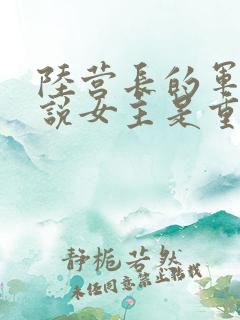 陸营長的軍
說女主是重
静栀若然
未任同意禁止转载